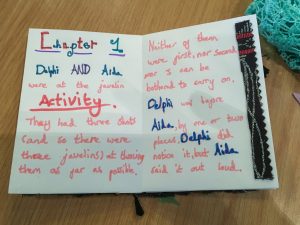 Chapter 1
Delphi AND Aida
were at the javelin
Activity.
They had three shots
(and so there were
three javelins) at throwing
them as far as possible.
Neither of them
were first, nor second
nor I can be
bothered to carry on.
Delphi was before
Aida, by one or two
places, Delphi did
notice it, but Aida
said it out loud.